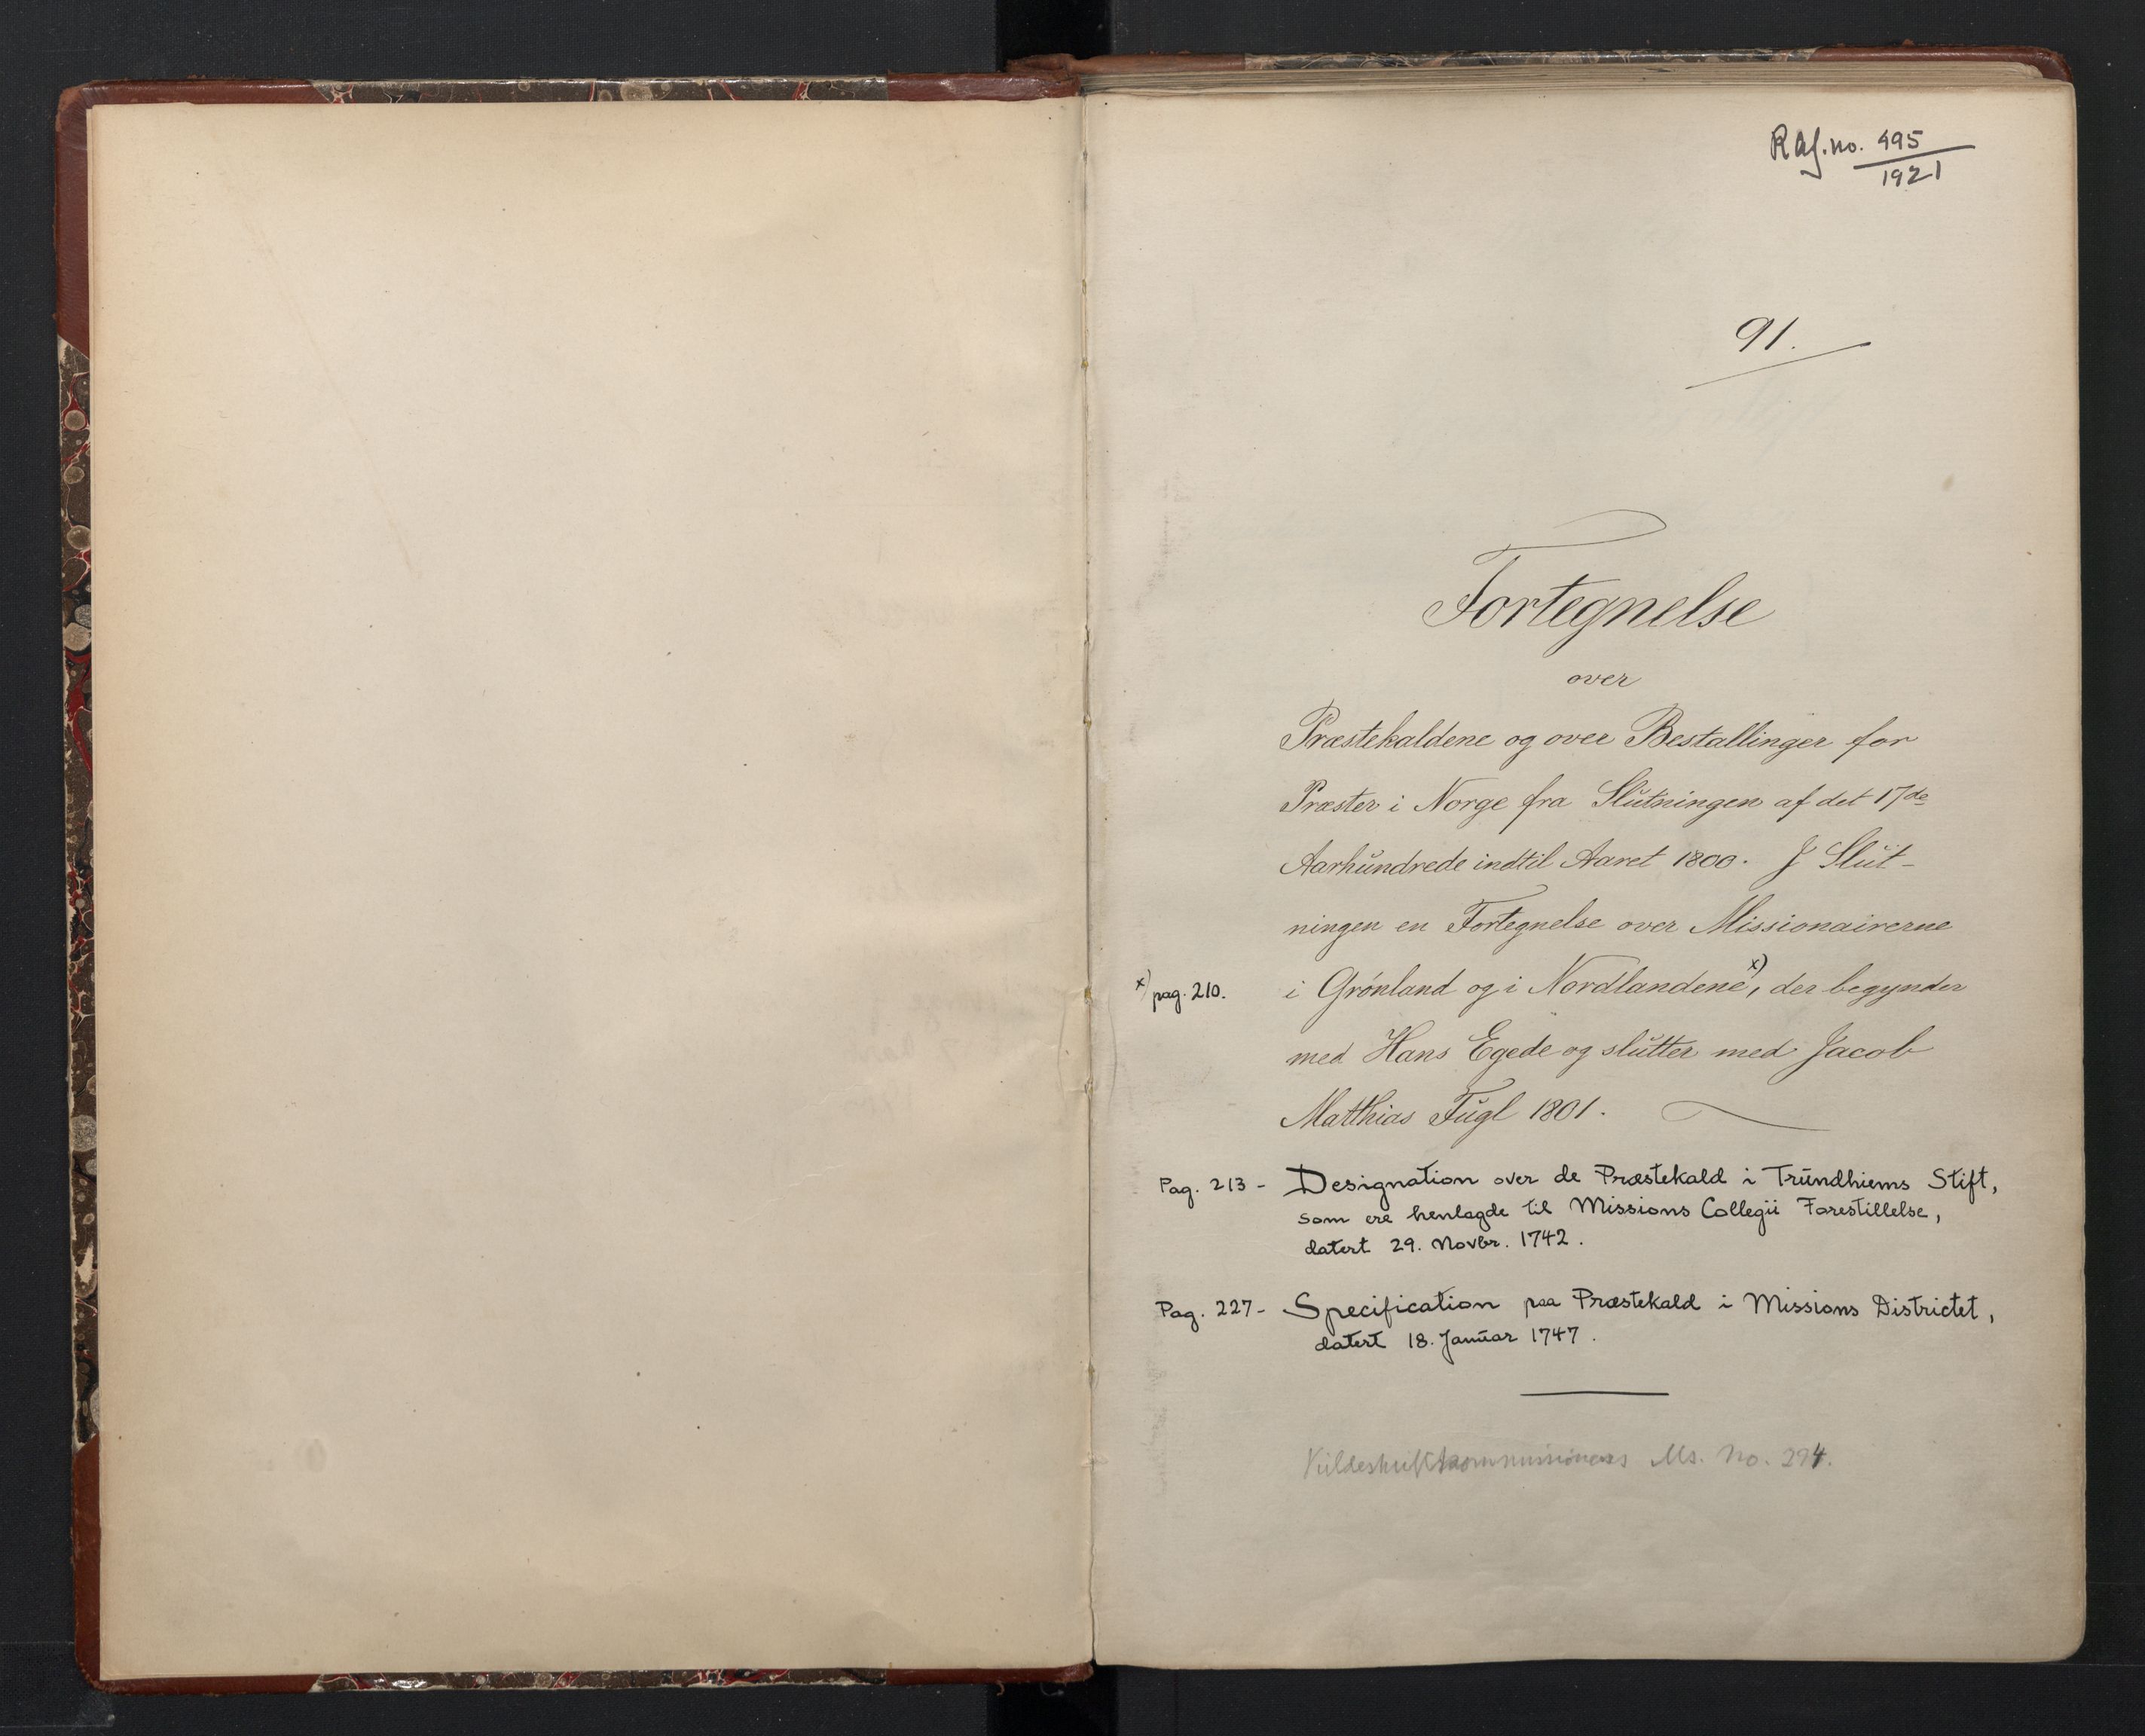 R Af. no. 495
1921
91.
Fortegnelse
over
Præstekaldene og over Bestallinger for
Præster i Norge fra Slutningen af det 17de
Aarhundrede indtil Aaret 1800. I Slut-
ningen en Fortegnelse over Missionairerne
x) pag. 210. i Grönland og i Nordlandene x), der begynder
med Hans Egede og slutter med Jacob
Matthias Fugl 1801.
Pag. 213 - Designation over de Præstekald i Trundhiems Stift,
som ere henlagde til Missions Collegii Forestillelse,
datert 29. Novbr. 1742.
Pag. 227 - Specification paa Præstekald i Missions Districtet,
datert 18. Januar 1747.
Kildeskriftkommissionens Ms. No. 294.